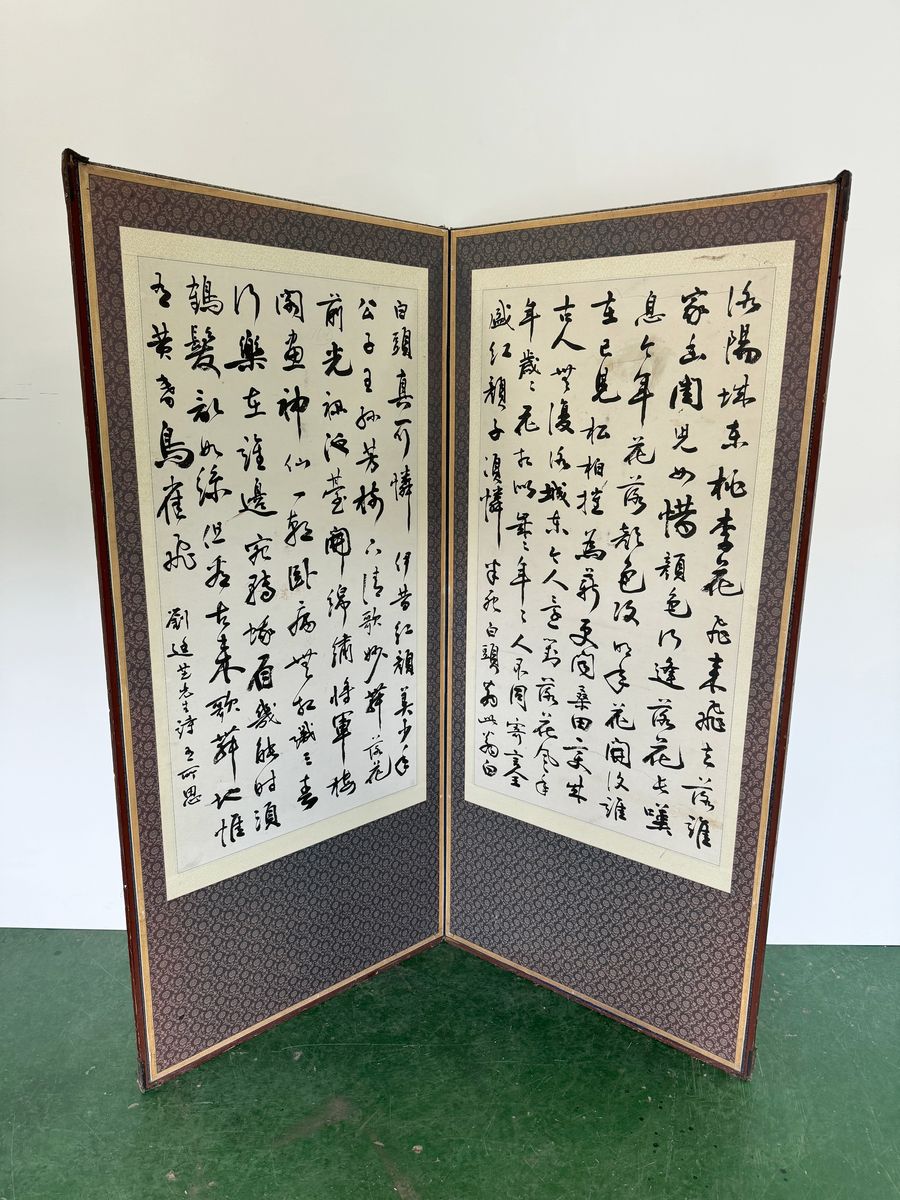 洛陽城東桃李花飛來飛去落誰
家幽閨兒女惜顏色行逢落花長嘆
息今年花落顏色改明年花開復誰
在已見松柏摧為薪更聞桑田變成
古人無復洛城東今人還對落花風年
年歲々花相似歲々年々人不同寄言全
盛紅顏子須憐半死白頭翁此翁白
白頭真可憐伊昔紅顏美少年
公子王孫芳樹下清歌妙舞落花
前光祿池臺開錦繡將軍樓
閣畫神仙一朝臥病無相識三春
行樂在誰邊宛轉蛾眉幾能時須
鶴髮亂如絲但看古來歌舞地惟
有黃昏鳥雀飛
劉廷芝先生詩有所思